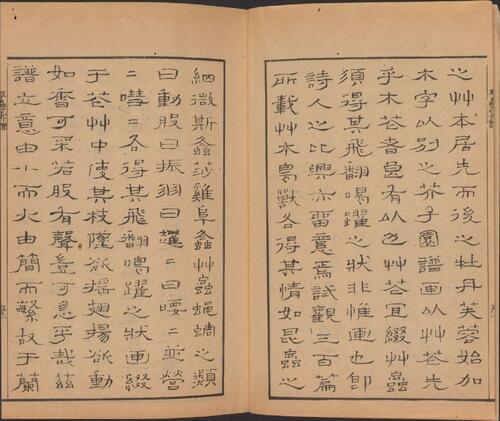 之艸本居先而後之牡丹芙蓉始加
木字以别之芥子園譜画以艸花先
乎木花者良有以也艸花宜綴艸蟲
須得其飛翻鳴躍之狀非惟画也即
詩人之比興亦畱意焉試觀三百篇
所載艸木鳥獸各得其情如昆蟲之
細微斯螽莎雞阜螽艸蟲蝇蜩之類
曰動股曰振羽曰趯二曰喓二並營
二嘒二各得其飛翻鳴躍之狀画綴
于花艸中使其枝墜欲摇翅揚欲動
如香可采若股有聲豈可忽乎哉兹
譜立意由小而大由簡而繁故于蘭